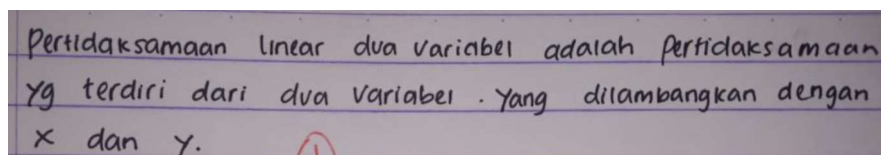 Pertidaksamaan linear dua variabel adalah pertidaksamaan
yg terdiri dari dua variabel . yang dilambangkan dengan
x dan y.